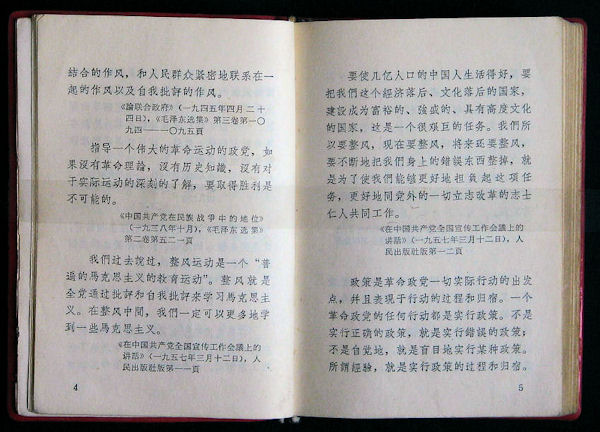 結合的作风，和人民群众紧密地联系在一
起的作风以及自我批評的作风。
《論联合政府》（一九四五年四月二十
四日），《毛泽东选集》第三卷第一〇
九四——一〇九五頁
指导一个伟大的革命运动的政党，如
果沒有革命理論，沒有历史知識，沒有对
于实际运动的深刻的了解，要取得胜利是
不可能的。
《中国共产党在民族战爭中的地位》
（一九三八年十月），《毛泽东选集》
第二卷第五二一頁
我們过去說过，整风运动是一个“普
遍的馬克思主义的教育运动”。整风就是
全党通过批評和自我批評来学习馬克思主
义。在整风中間，我們一定可以更多地学
到一些馬克思主义。
《在中国共产党全国宣传工作会議上的
讲話》（一九五七年三月十二日），人
民出版社版第一一頁
4
要使几亿人口的中国人生活得好，要
把我們这个經济落后、文化落后的国家，
建設成为富裕的、強盛的、具有高度文化
的国家，这是一个很艰巨的任务。我們所
以要整风，現在要整风，将来还要整风，
要不断地把我們身上的錯誤东西整掉，就
是为了使我們能够更好地担負起这項任
务，更好地同党外的一切立志改革的志士
仁人共同工作。
《在中国共产党全国宣传工作会議上的
讲話》（一九五七年三月十二日），人
民出版社版第一二頁
政策是革命政党一切实际行动的出发
点，并且表現于行动的过程和归宿。一个
革命政党的任何行动都是实行政策。不是
实行正确的政策，就是实行錯誤的政策；
不是自觉地，就是盲目地实行某种政策。
所謂經驗，就是实行政策的过程和归宿。
5